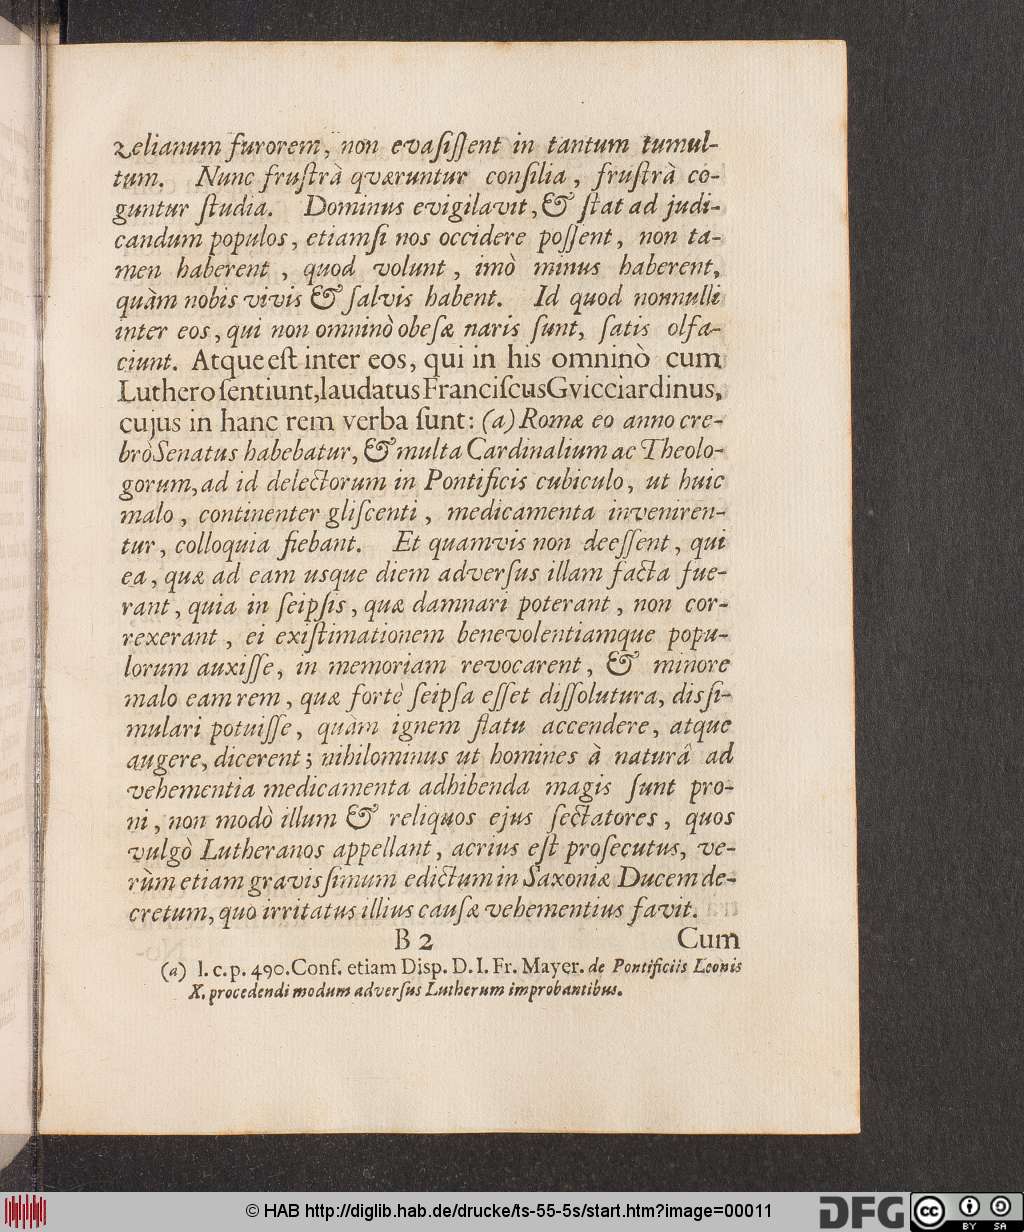 zelianum furorem, non evaſiſſent in tantum tumul-
tum. Nunc fruſtrà quæruntur conſilia, fruſtrà co-
guntur ſtudia. Dominus evigilavit, & ſtat ad judi-
candum populos, etiamſi nos occidere poſſent, non ta-
men haberent, quod volunt, imò minus haberent,
quàm nobis vivis & ſalvis habent. Id quod nonnulli
inter eos, qui non omninò obeſæ naris ſunt, ſatis olfa-
ciunt. Atque eſt inter eos, qui in his omninò cum
Luthero ſentiunt, laudatus Franciſcus Gvicciardinus,
cujus in hanc rem verba ſunt: (a) Romæ eo anno cre-
brò Senatus habebatur, & multa Cardinalium ac Theolo-
gorum, ad id delectorum in Pontificis cubiculo, ut huic
malo, continenter gliſcenti, medicamenta inveniren-
tur, colloquia fiebant. Et quamvis non deeſſent, qui
ea, quæ ad eam usque diem adverſus illam facta fue-
rant, quia in ſeipſis, quæ damnari poterant, non cor-
rexerant, ei exiſtimationem benevolentiamque popu-
lorum auxiſſe, in memoriam revocarent, & minore
malo eam rem, quæ fortè ſeipſa eſſet diſſolutura, disſi-
mulari potuiſſe, quàm ignem flatu accendere, atque
augere, dicerent; nihilominus ut homines à naturâ ad
vehementia medicamenta adhibenda magis ſunt pro-
ni, non modò illum & reliquos ejus ſectatores, quos
vulgò Lutheranos appellant, acrius eſt proſecutus, ve-
rùm etiam gravisſimum edictum in Saxoniæ Ducem de-
cretum, quo irritatus illius cauſæ vehementius favit.
B 2 Cum
(a) l. c. p. 490. Conf. etiam Disp. D. I. Fr. Mayer. de Pontificiis Leonis
X. procedendi modum adverſus Lutherum improbantibus.
© HAB http://diglib.hab.de/drucke/ts-55-5s/start.htm?image=00011
DFG
cc BY SA